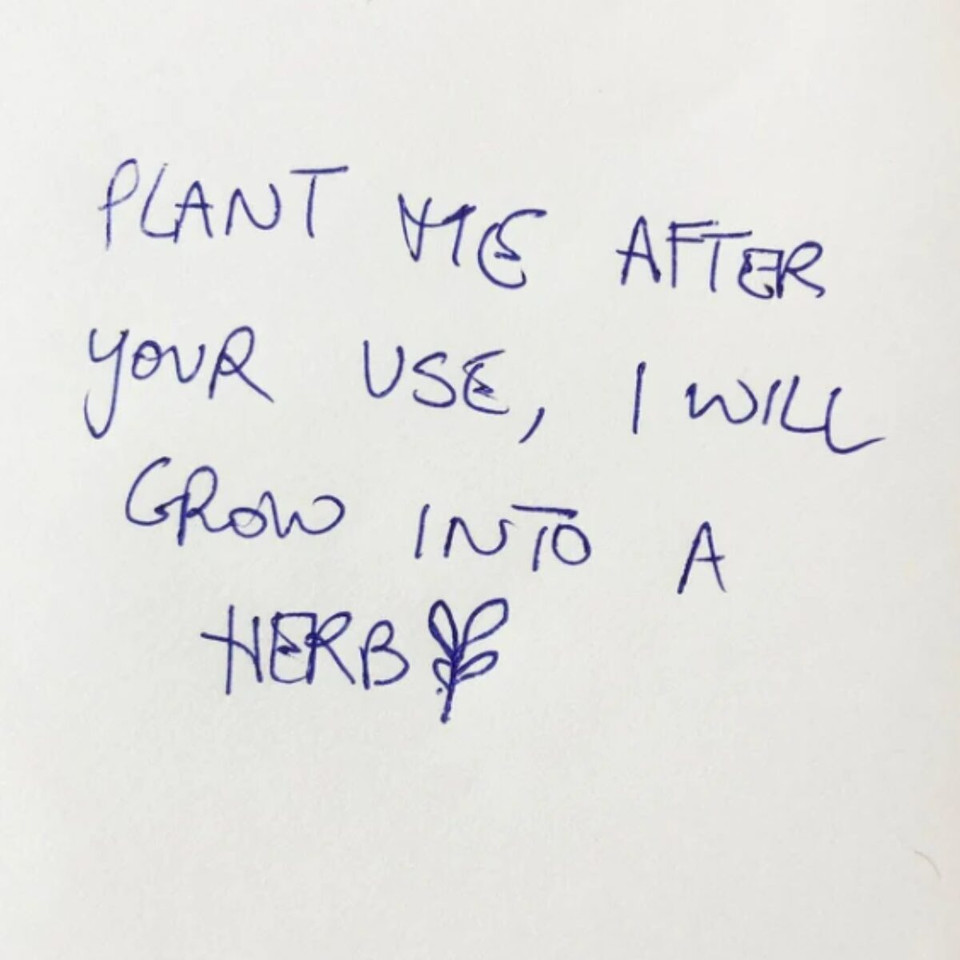 PLANT ME AFTER
YOUR USE, I WILL
GROW INTO A
HERB